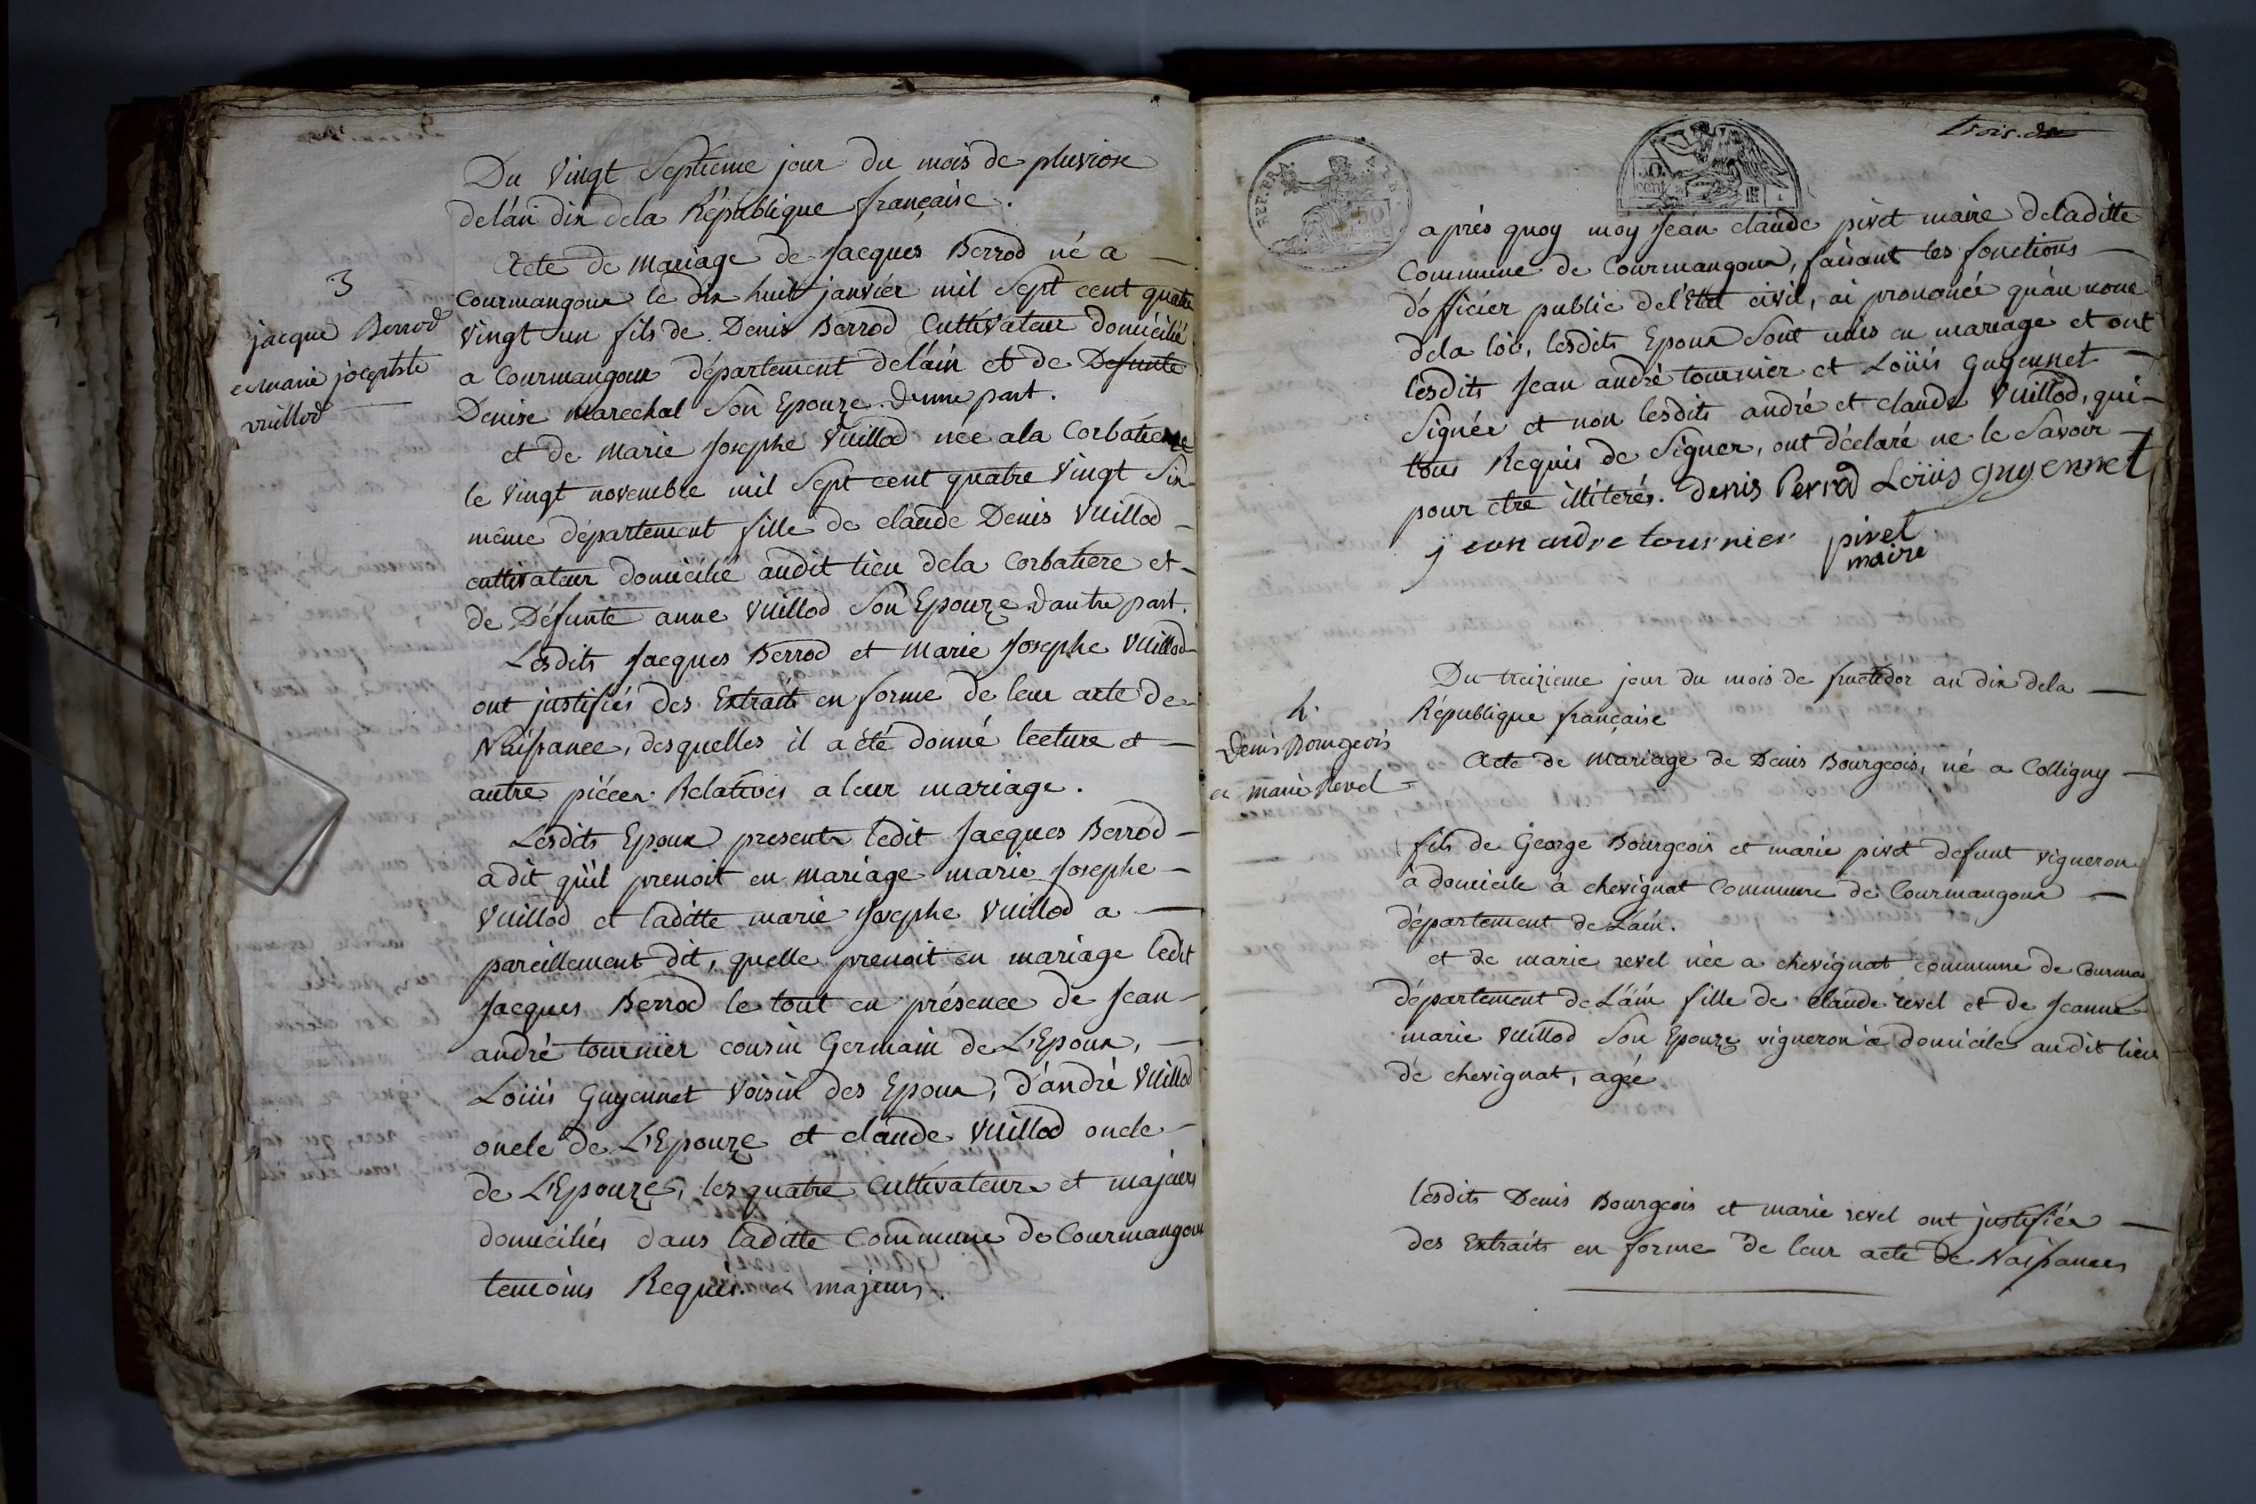 Du vingt Septieme jour du mois de pluviose
de l'an dix de la République française.
Acte de mariage de Jacques Berrod né a
Courmangoux le dix huit janvier mil Sept cent quatre
vingt un fils de Denis Berrod Cultivateur domicilié
a Courmangoux département de l'ain et de Defunte
Denise Marechal Son Epouze d'une part.
et de Marie Josephe Vuillod née a la Corbatiere
le vingt novembre mil Sept cent quatre vingt Six
même département fille de claude Denis Vuillod
cultivateur domicilié audit lieu de la Corbatiere et
de Défunte anne Vuillod Son Epouze d'autre part.
Lesdits Jacques Berrod et Marie Josephe Vuillod
ont justifiés des Extraits en forme de leur acte de
Naissance, desquelles il a été donné lecture et
autre piécex Relatives a leur mariage.
Lesdits Epoux presents ledit Jacques Berrod
a dit qu'il prenoit en mariage marie Josephe
Vuillod et laditte marie Josephe Vuillod a
pareillement dit, quelle prenoit en mariage ledit
Jacques Berrod le tout en présence de Jean
andré tournier cousin Germain de L'Epoux,
Loüis Guyennet Voisin des Epoux, d'andré Vuillod
oncle de L'Epouze et claude Vuillod oncle
de L'Epouze, les quatre Cultivateurs et majeurs
domiciliés dans laditte Commune de Courmangoux
temoins Requis et majeurs.
3
jacque Berrod
et marie josephte
vuillod
REP. FRA.
50
cent
trois.
après quoy moy Jean claude pivet maire de laditte
Commune de Courmangoux, faisant les fonctions
d'officier public de l'Etat civil, ai prononcé qu'au nom
de la loi, lesdits Epoux Sont unis en mariage et ont
lesdits Jean andré tournier et Loüis Guyennet
Signés et non lesdits andré et claude Vuillod, qui
tous Requis de Signer, ont déclaré ne le Savoir
pour être illiterés. denis Perrod Loüis guyennet
jean andre tournier pivet
maire
Du treizieme jour du mois de fructidor an dix de la
République française
4.
Denis Bourgeois
et marie Revel
Acte de mariage de Denis Bourgeois, né a Colligny
fils de George Bourgeois et marie pivet defunt vigneron
à domicile à chevignat Commune de Courmangoux
département de L'ain.
et de marie revel née a chevignat commune de Courma
département de L'ain fille de claude revel et de Jeanne
marie Vuillod Son Epouze vigneron a domicile audit lieu
de chevignat, agée
lesdits Denis Bourgeois et marie revel ont justifiés
des Extraits en forme de leur acte de Naissances